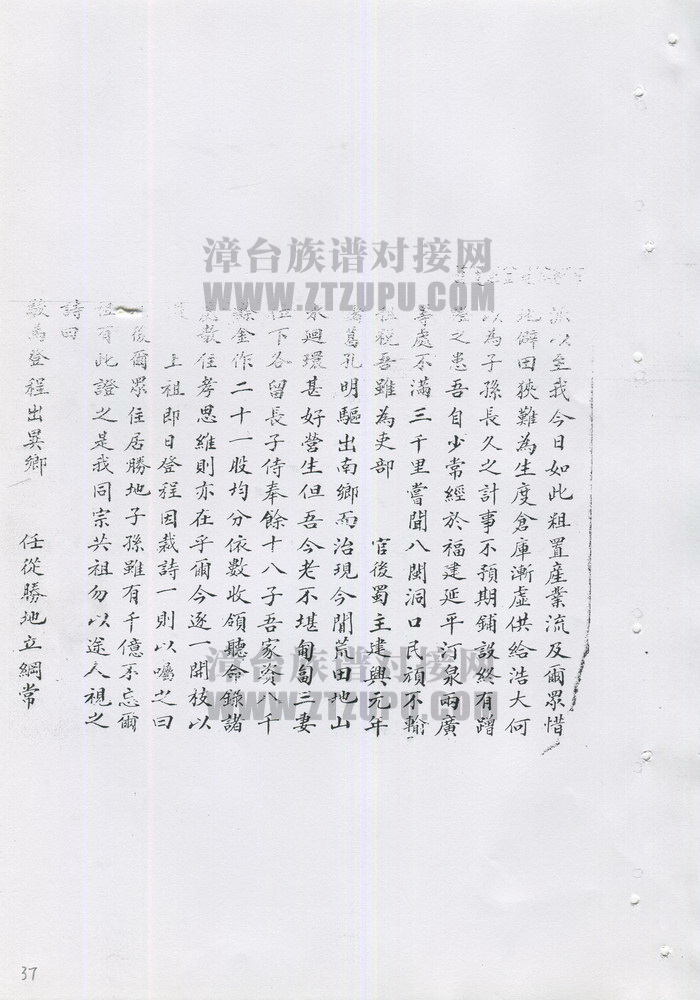 漳台族谱对接网
WWW.ZTZUPU.COM
源以至我今日如此粗置産業流及爾眾惜
地僻田狹難為生度倉庫漸虛供給浩大何
以為子孫長久之計事不預期鋪設終有蹭
之患吾自少常經於福建延平汀泉兩廣
等處不滿三千里嘗聞八閩洞口民頑不輸
租税吾雖為吏部 官後蜀主建興元年
諸葛孔明驅出南鄉而治現今閒荒田地山
水廻環甚好營生但吾今老不堪匍匐三妻
位下各留長子侍奉餘十八子吾家資八千
餘金作二十一股均分依數收領聽命錄諸
教住孝思維則亦在乎爾今逐一開枝以
上祖即日登程因裁詩一則以囑之曰
後爾眾住居勝地子孫雖有千億不忘爾
祖有此證之是我同宗共祖勿以途人視之
詩曰
駿馬登程出異鄉 任從勝地立綱常
漳台族谱对接网
WWW.ZTZUPU.COM
37